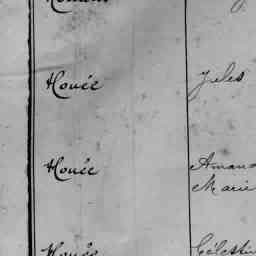 Houée Jules
Houée Amand
Marie
Houée Célestin